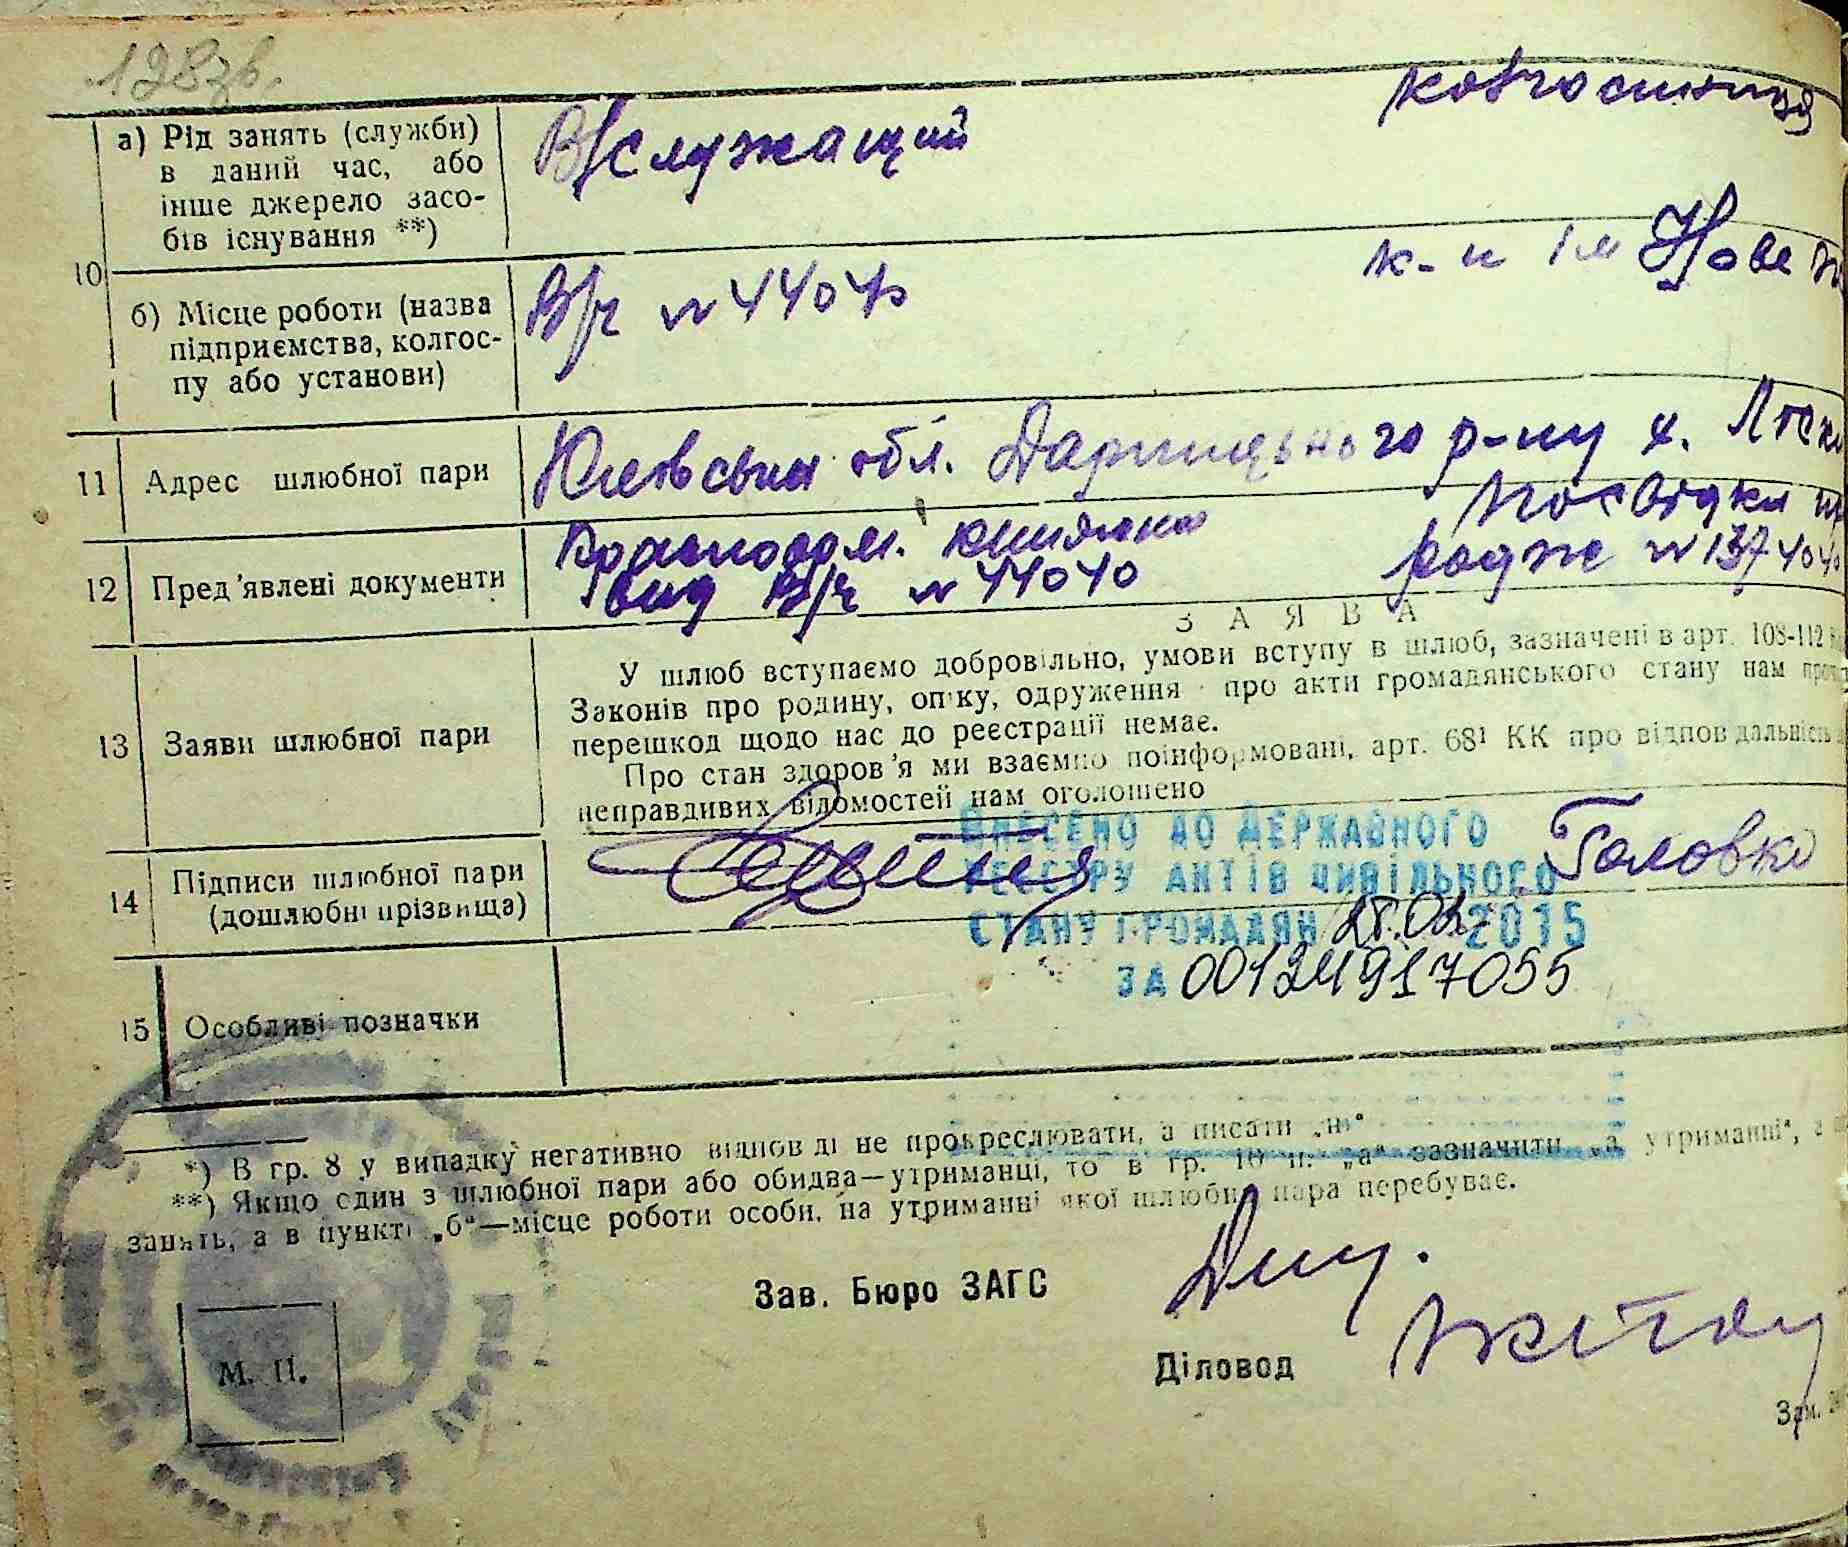 128зв.
а) Рід занять (служби)
в даний час, або
інше джерело засо-
бів існування **)
В/служащий
колгоспниця
10
б) Місце роботи (назва
підприємства, колгос-
пу або установи)
В/ч №
к-п ім Нове
11 Адрес шлюбної пари
Київська обл. Дарницького р-ну х.
12 Пред'явлені документи
Красноарм. книжка
вид В/ч № 44040
Посвідка пр
родж №
З А Я В А
13 Заяви шлюбної пари
У шлюб вступаємо добровільно, умови вступу в шлюб, зазначені в арт. 108-112
Законів про родину, опіку, одруження про акти громадянського стану нам
перешкод щодо нас до реєстрації немає.
Про стан здоров'я ми взаємно поінформовані, арт. 68¹ КК про відповідальність
неправдивих відомостей нам оголошено
14 Підписи шлюбної пари
(дошлюбні прізвища)
Головко
ВНЕСЕНО ДО ДЕРЖАВНОГО
РЕЄСТРУ АКТІВ ЦИВІЛЬНОГО
СТАНУ ГРОМАДЯН 2015
ЗА 00124917055
15 Особливі позначки
*) В гр. 8 у випадку негативно відповіді не прокреслювати, а писати „ні“
**) Якщо один з шлюбної пари або обидва—утриманці, то в гр. 10 п. „а“ зазначити „а утриманні“,
занять, а в пункті „б“—місце роботи особи, на утриманні якої шлюбна пара перебуває.
Зав. Бюро ЗАГС
Діловод
М. П.
Зам.